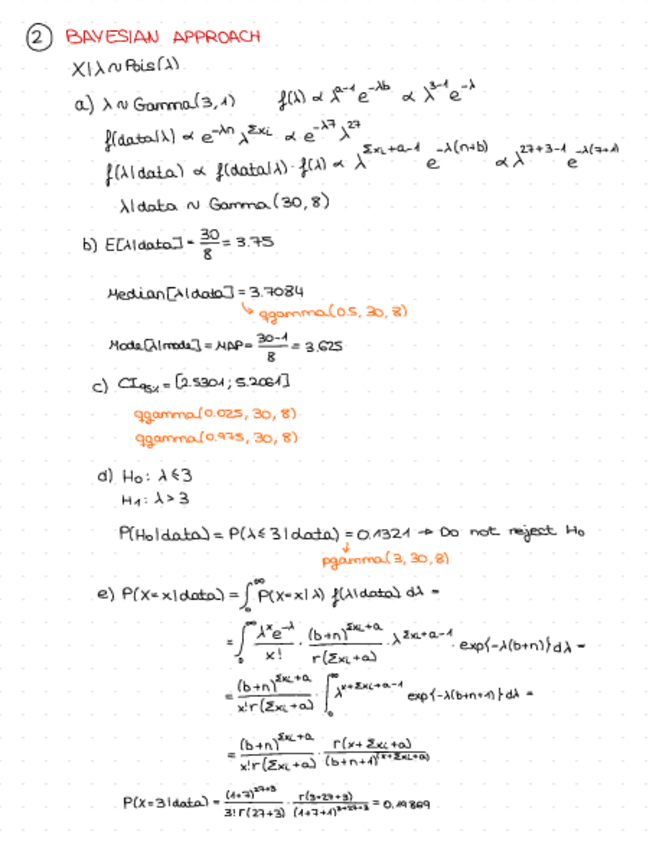 2 BAYESIAN APPROACH
X|λ ~ Pois(λ)
a) λ ~ Gamma(3,1) f(λ) ∝ λ^(a-1) e^(-λb) ∝ λ^(3-1) e^(-λ)
f(data|λ) ∝ e^(-λn) λ^(Σxi) ∝ e^(-λ7) λ^(27)
f(λ|data) ∝ f(data|λ)·f(λ) ∝ λ^(Σxi+a-1) e^(-λ(n+b)) ∝ λ^(27+3-1) e^(-λ(7+1))
λ|data ~ Gamma(30,8)
b) E[λ|data] = 30/8 = 3.75
Median[λ|data] = 3.7084
↳ qgamma(0.5, 30, 8)
Mode[λ|mode] = MAP = (30-1)/8 = 3.625
c) CI95% = [2.5301; 5.2061]
qgamma(0.025, 30, 8)
qgamma(0.975, 30, 8)
d) H0: λ ≤ 3
H1: λ > 3
P(H0|data) = P(λ ≤ 3|data) = 0.1321 → Do not reject H0
↓
pgamma(3, 30, 8)
e) P(X=x|data) = ∫_0^∞ P(X=x|λ) f(λ|data) dλ =
= ∫_0^∞ (λ^x e^(-λ))/x! · (b+n)^(Σxi+a)/Γ(Σxi+a) · λ^(Σxi+a-1) · exp{-λ(b+n)} dλ =
= (b+n)^(Σxi+a)/(x!Γ(Σxi+a)) · ∫_0^∞ λ^(x+Σxi+a-1) exp{-λ(b+n+1)} dλ =
= (b+n)^(Σxi+a)/(x!Γ(Σxi+a)) · Γ(x+Σxi+a)/(b+n+1)^(x+Σxi+a)
P(X=3|data) = (1+7)^(27+3)/(3!Γ(27+3)) · Γ(3+27+3)/(1+7+1)^(3+27+3) = 0.19869